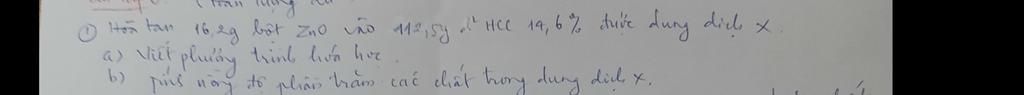 ① Hòa tan 16,2g bột ZnO vào 112,5g d² HCl 14,6% được dung dịch X.
a) Viết phương trình hóa học.
b) Tính nồng độ phần trăm các chất trong dung dịch X.